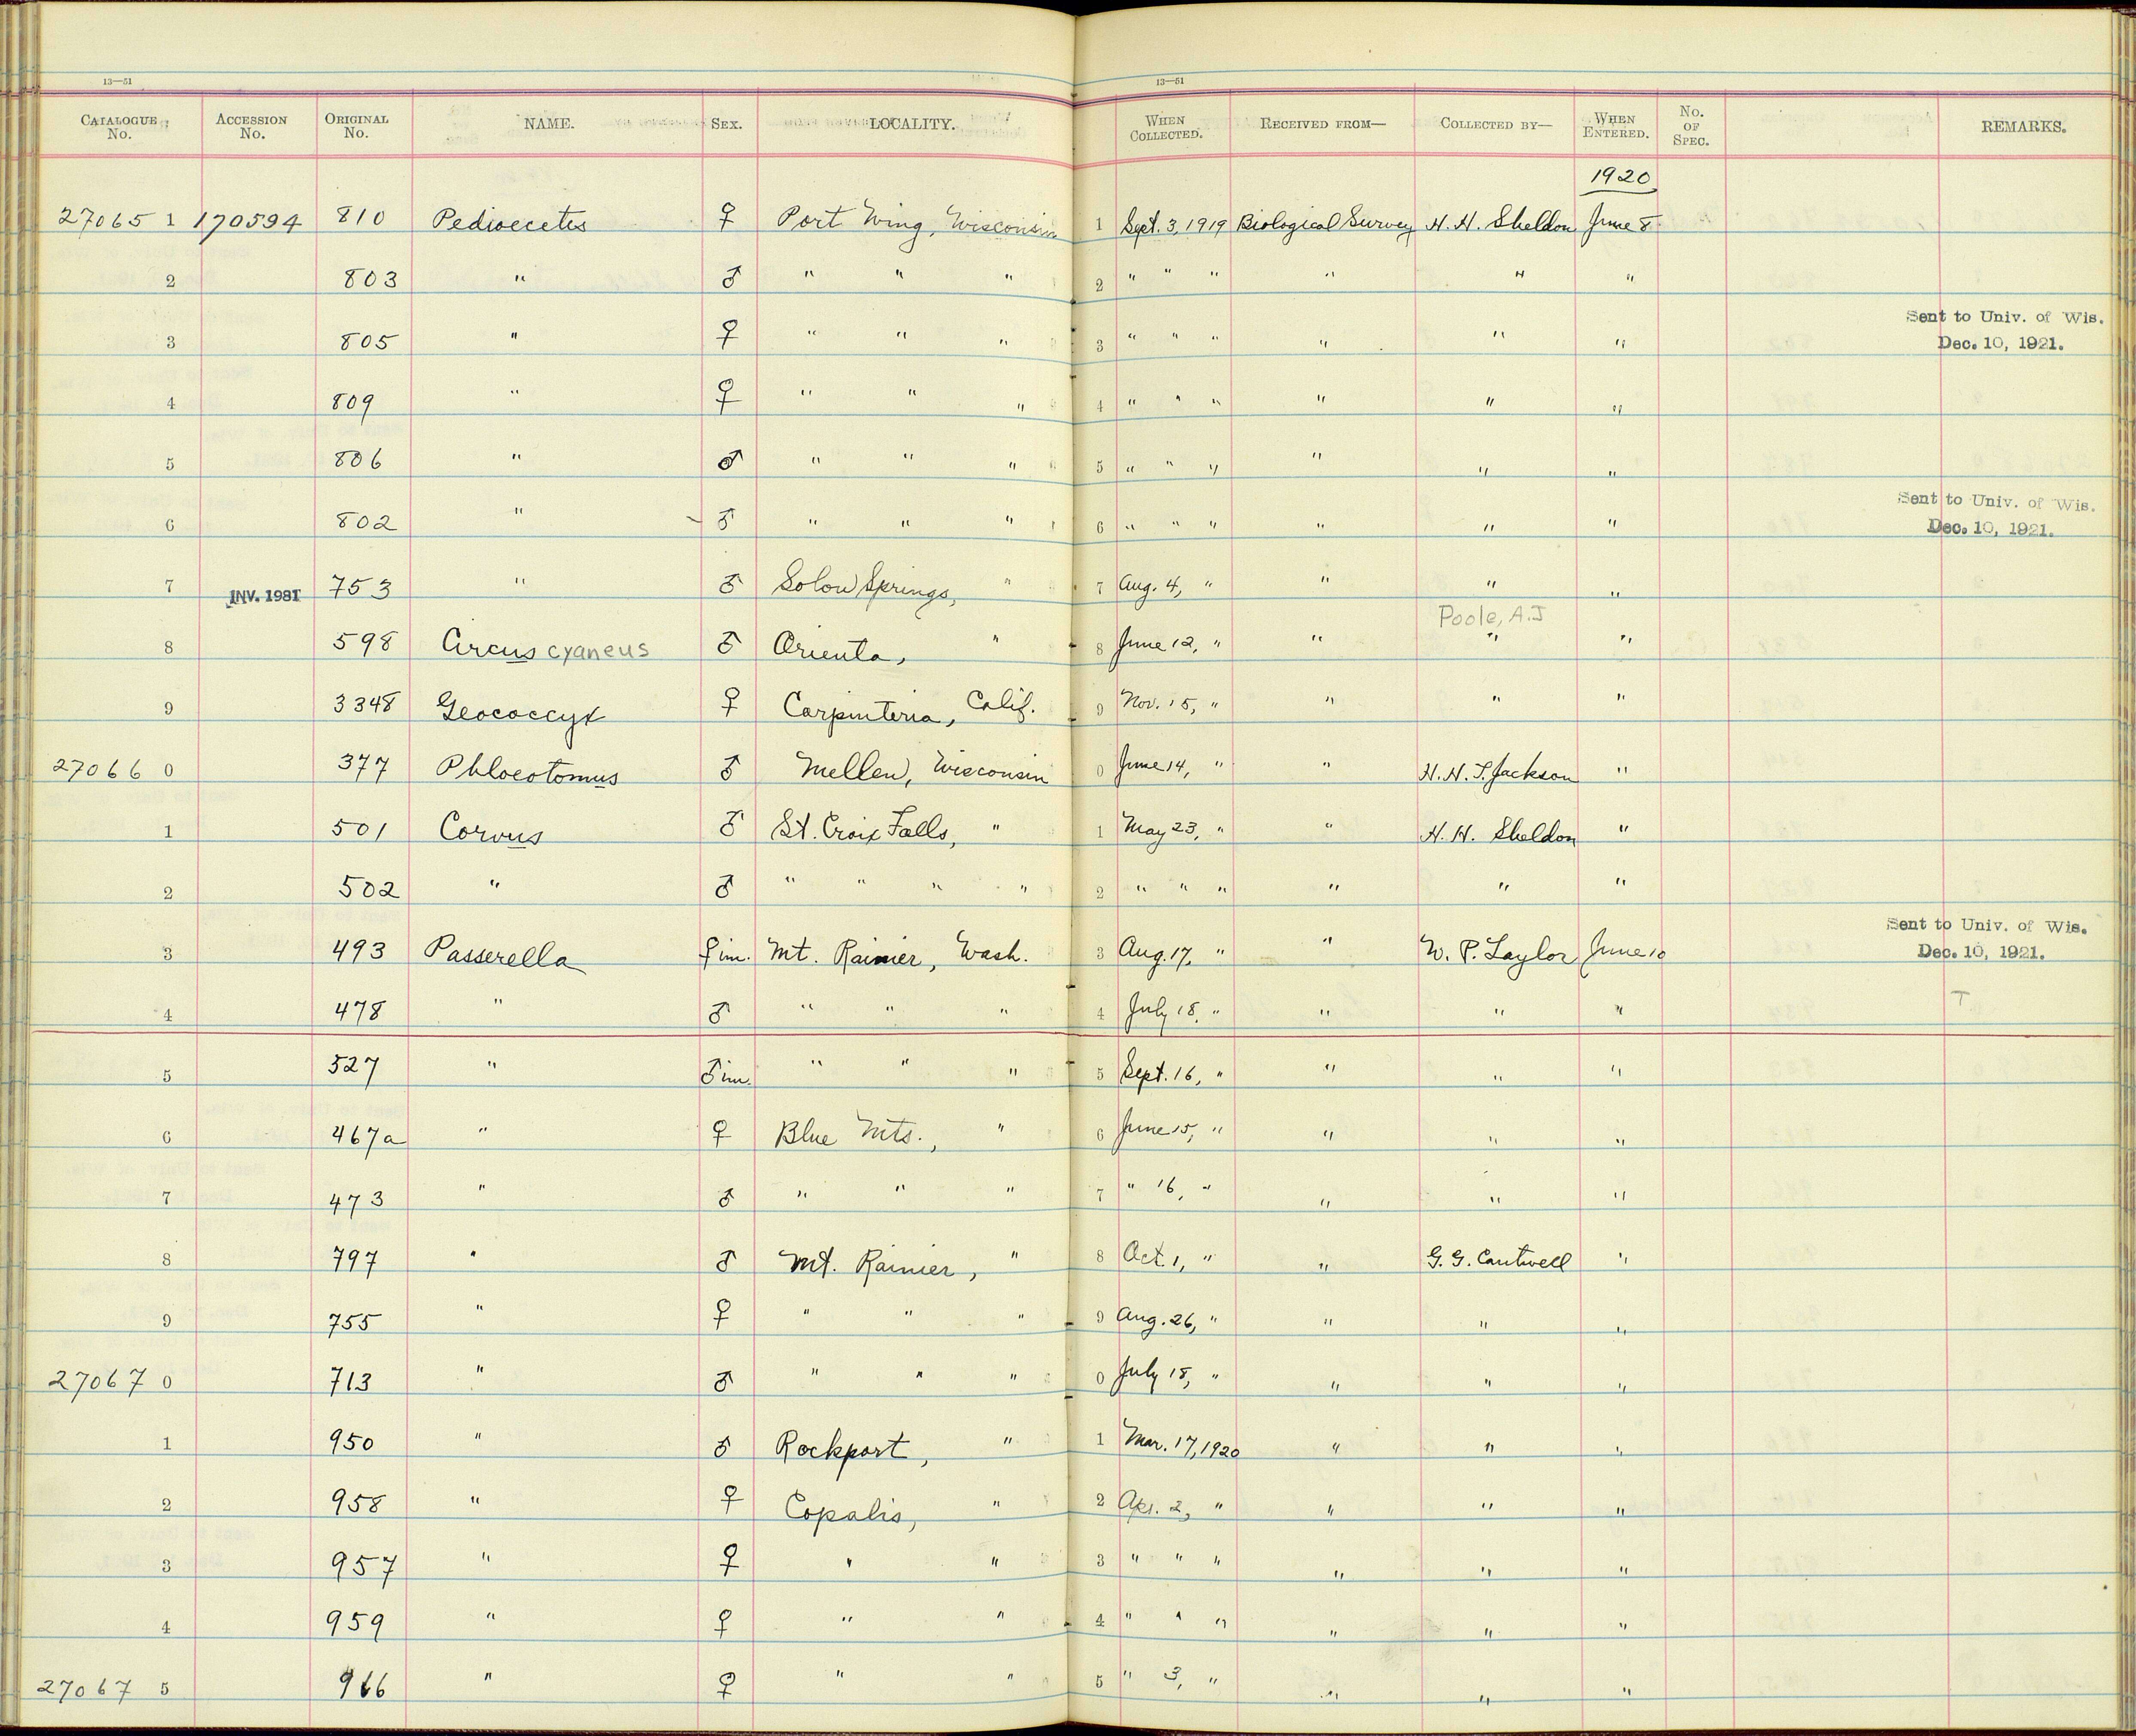 13—51 13—51
CATALOGUE No. ACCESSION No. ORIGINAL No. NAME. SEX. LOCALITY. WHEN COLLECTED. RECEIVED FROM— COLLECTED BY— WHEN ENTERED. No. OF SPEC. REMARKS.
1920
27065 1 170594 810 Pedioecetes ♀ Port Wing, Wisconsin 1 Sept. 3, 1919 Biological Survey H. H. Sheldon June 8
2 803 " ♂ " " " 2 " " " " " "
Sent to Univ. of Wis.
3 805 " ♀ " " " 3 " " " " " " Dec. 10, 1921.
4 809 " ♀ " " " 4 " " " " " "
5 806 " ♂ " " " 5 " " " " " "
Sent to Univ. of Wis.
6 802 " ♂ " " " 6 " " " " " " Dec. 10, 1921.
7 INV. 1981 753 " ♂ Solon Springs, " 7 Aug. 4, " " " "
Poole, A.J
8 598 Circus cyaneus ♂ Orienta, " 8 June 12, " " " "
9 3348 Geococcyx ♀ Carpinteria, Calif. 9 Nov. 15, " " " "
27066 0 377 Phloeotomus ♂ Mellen, Wisconsin 0 June 14, " " H. H. T. Jackson "
1 501 Corvus ♂ St. Croix Falls, " 1 May 23, " " H. H. Sheldon "
2 502 " ♂ " " " " 2 " " " " " "
Sent to Univ. of Wis.
3 493 Passerella ♀ im. Mt. Rainier, Wash. 3 Aug. 17, " " W. P. Taylor June 10 Dec. 10, 1921.
4 478 " ♂ " " " 4 July 18, " " " " T
5 527 " ♂ im. " " " 5 Sept. 16, " " " "
6 467a " ♀ Blue Mts., " 6 June 15, " " " "
7 473 " ♂ " " " 7 " 16, " " " "
8 797 " ♂ Mt. Rainier, " 8 Oct. 1, " " G. G. Cantwell "
9 755 " ♀ " " " 9 Aug. 26, " " " "
27067 0 713 " ♂ " " " 0 July 18, " " " "
1 950 " ♂ Rockport, " 1 Mar. 17, 1920 " " "
2 958 " ♀ Copalis, " 2 Apr. 2, " " " "
3 957 " ♀ " " 3 " " " " " "
4 959 " ♀ " " 4 " " " " " "
27067 5 966 " ♀ " " 5 " 3, " " " "